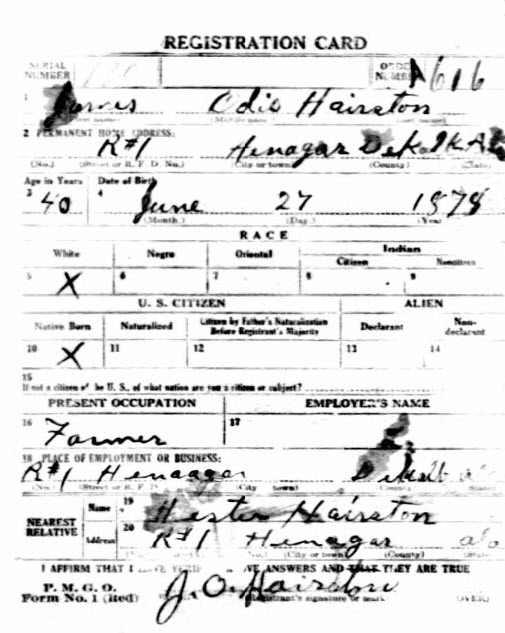 REGISTRATION CARD
SERIAL NUMBER
ORDER NUMBER A616
1 James Odis Hairston
(First name) (Middle name) (Last name)
2 PERMANENT HOME ADDRESS:
R#1 Henagar DeKalb Ala
(No.) (Street or R. F. D. No.) (City or town) (County) (State)
Age in Years Date of Birth
3 40 4 June 27 1878
(Month.) (Day.) (Year
RACE
White Negro Oriental Indian
Citizen Noncitizen
5 X 6 7 8 9
U. S. CITIZEN ALIEN
Native Born Naturalized Citizen by Father's Naturalization Before Registrant's Majority Declarant Non-declarant
10 X 11 12 13 14
15
If not a citizen of the U. S., of what nation are you a citizen or subject?
PRESENT OCCUPATION EMPLOYER'S NAME
16 Farmer 17
18 PLACE OF EMPLOYMENT OR BUSINESS:
R#1 Henagar DeKalb ala
(No.) (Street or R. F. D. (City town) (County) State)
NEAREST RELATIVE
Name 19 Hester Hairston
Address 20 R#1 Henagar ala
No.) (City or town) (County) (State
I AFFIRM THAT I HAVE VERIFIED ABOVE ANSWERS AND THAT THEY ARE TRUE
P. M. G. O.
Form No. 1 (Red) J. O. Hairston
(Registrant's signature or mark) (OVER)